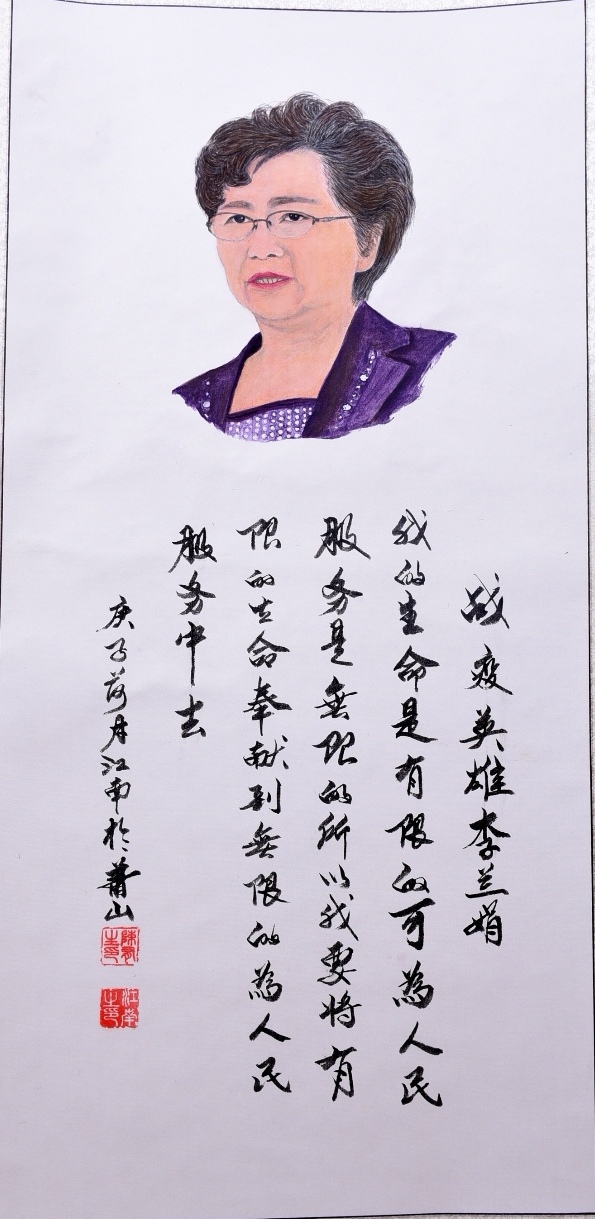 战疫英雄李兰娟
我的生命是有限的可為人民
服务是無限的所以我要将有
限的生命奉献到無限的為人民
服务中去
庚子荷月江南於萧山
江南之印